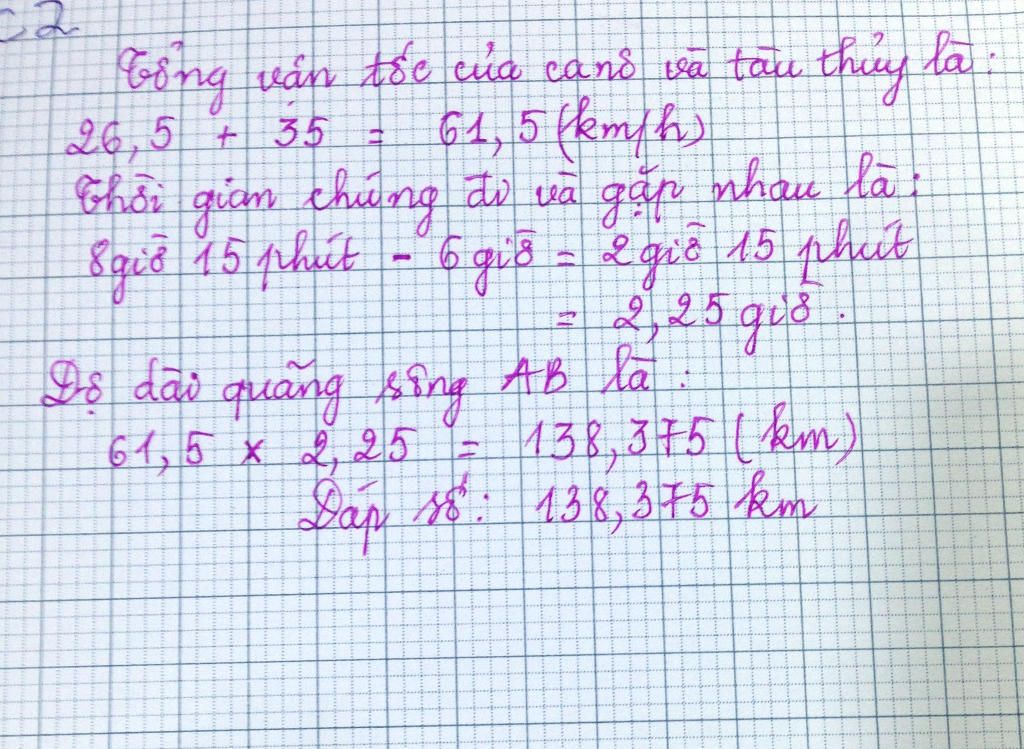 C2
Tổng vận tốc của canô và tàu thủy là:
26,5 + 35 = 61,5 (km/h)
Thời gian chúng đi và gặp nhau là:
8giờ 15 phút - 6 giờ = 2 giờ 15 phút
= 2,25 giờ.
Độ dài quãng sông AB là:
61,5 x 2,25 = 138,375 (km)
Đáp số: 138,375 km